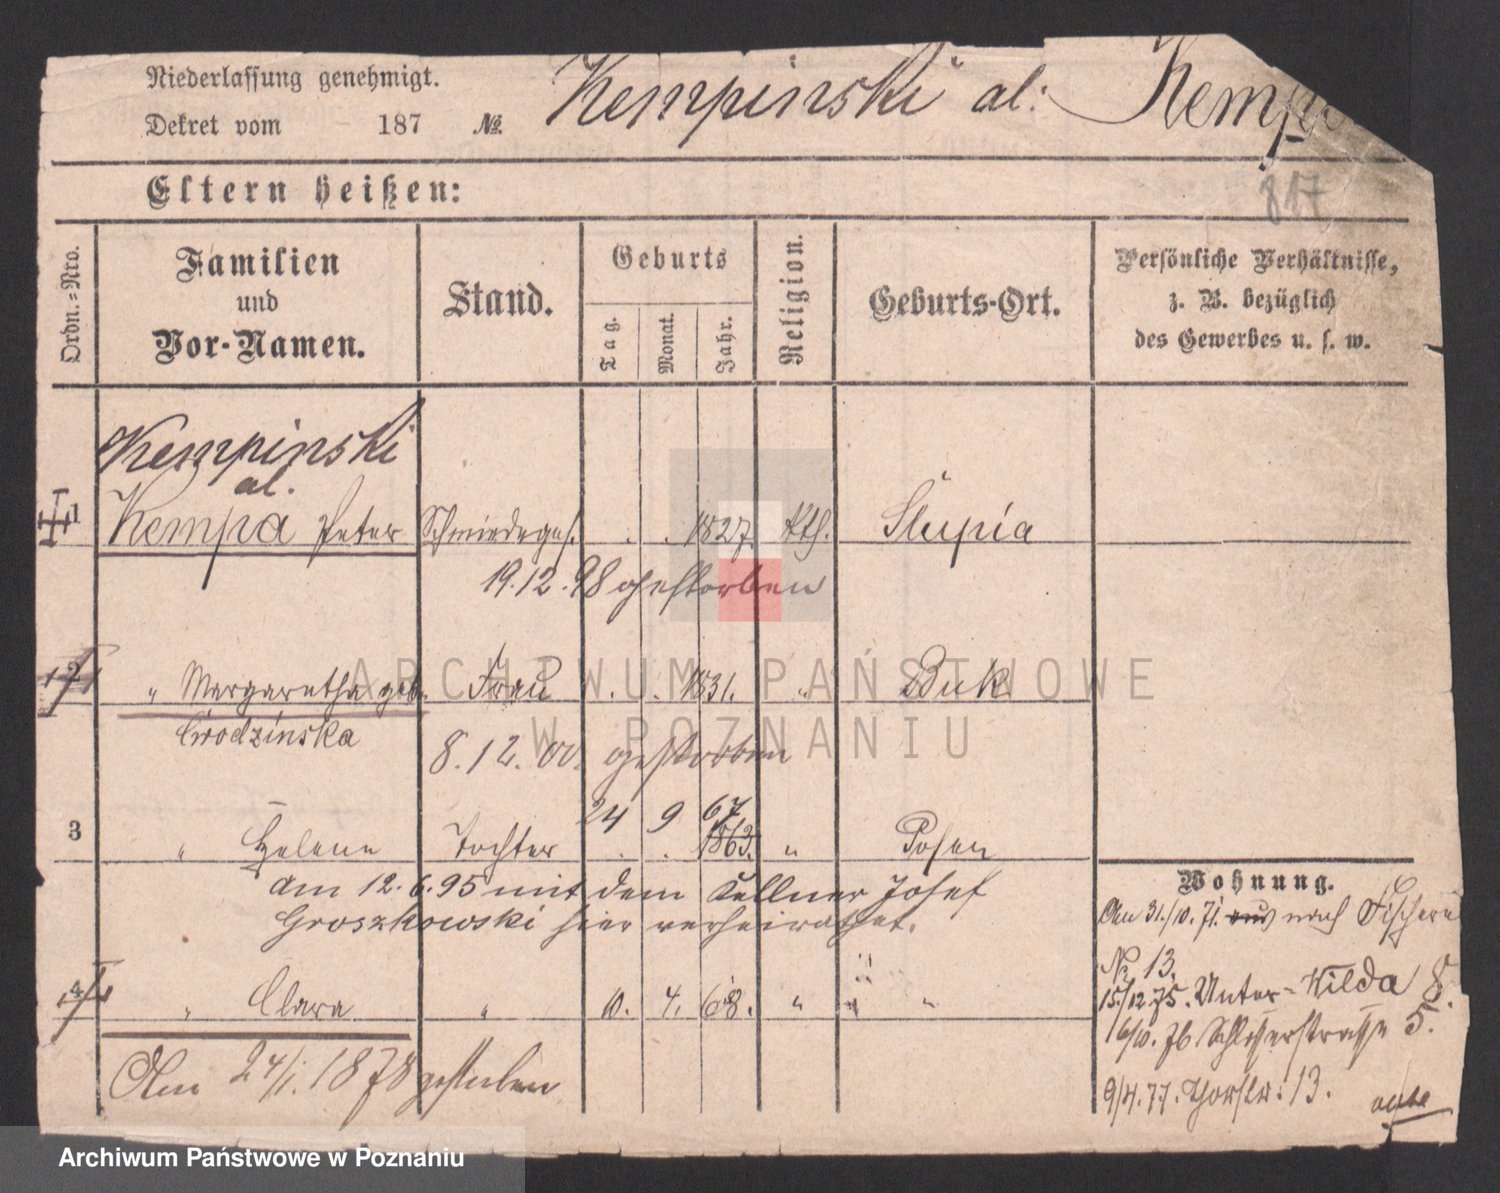 Niederlassung genehmigt.
Kempinski al: Kempa
Dekret vom 187 №
Eltern heißen:
817
Ordn.-Nro.
Familien
und
Vor-Namen.
Stand.
Geburts
Tag.
Monat.
Jahr.
Religion.
Geburts-Ort.
Persönliche Verhältnisse,
z. B. bezüglich
des Gewerbes u. s. w.
Kempinski
al.
1 Kempa Peter Schmiedeges. . . 1827. kth. Slupia
19.12.98 gestorben
2 " Margaretha geb. Frau . . 1831. " Buk
Grodzinska
8.12.00. gestorben
24 9 67
3 " Helene Tochter . . 1863. " Posen
am 12.6.95 mit dem Kellner Josef
Groszkowski hier verheirathet.
4 " Clara " 10. 4. 68. " "
Am 24/1. 1878 gestorben
Wohnung.
Am 31./10. 71. aus nach Fischerei
No 13.
15/12 75. Unter-Wilda 8.
16/10. 76 Schloßerstrasse 5.
9/4. 77. Thorstr: 13.
ARCHIWUM PAŃSTWOWE
W POZNANIU
Archiwum Państwowe w Poznaniu